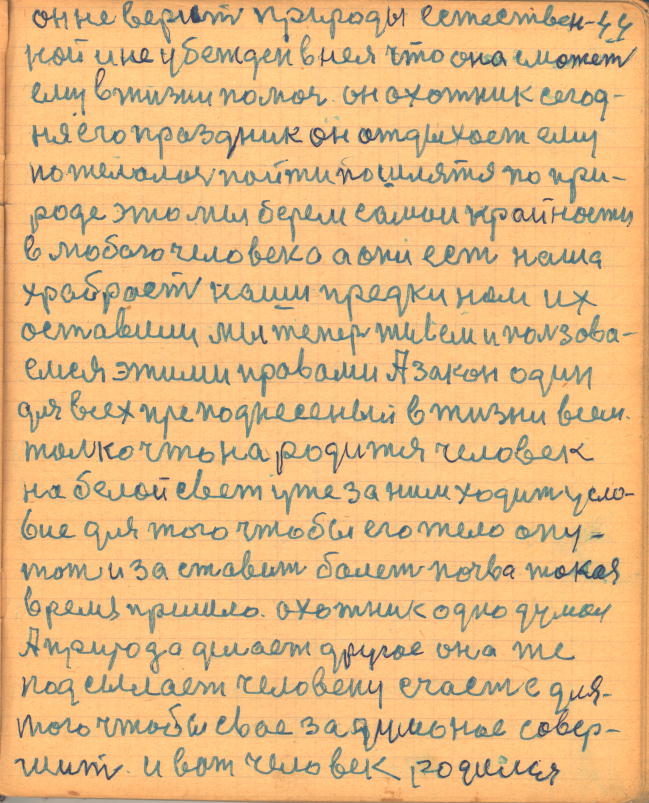 он не верит природы естествен- 44
ной и не убежден в нея что она сможет
ему в жизни помоч. он охотник сегод-
ня его праздник он отдыхает ему
пожелалоя пойти пошлятя по при-
роде это мы берем самои крайности
в любого человека а они ест наша
храброст наши предки нам их
оставили мы тепер живем и ползова-
емся этими правами А закон один
для всех преподнесеный в жизни всем.
толко что народится человек
на белой свет уже за ним ходит усло-
вие для того чтобы его тело опу-
тот и заставит болет почва такая
время пришло. охотник одно думал
А природа делает другое она же
подсылает человеку счасте для-
того чтобы свое задуманое совер-
шит. и вот человек родился